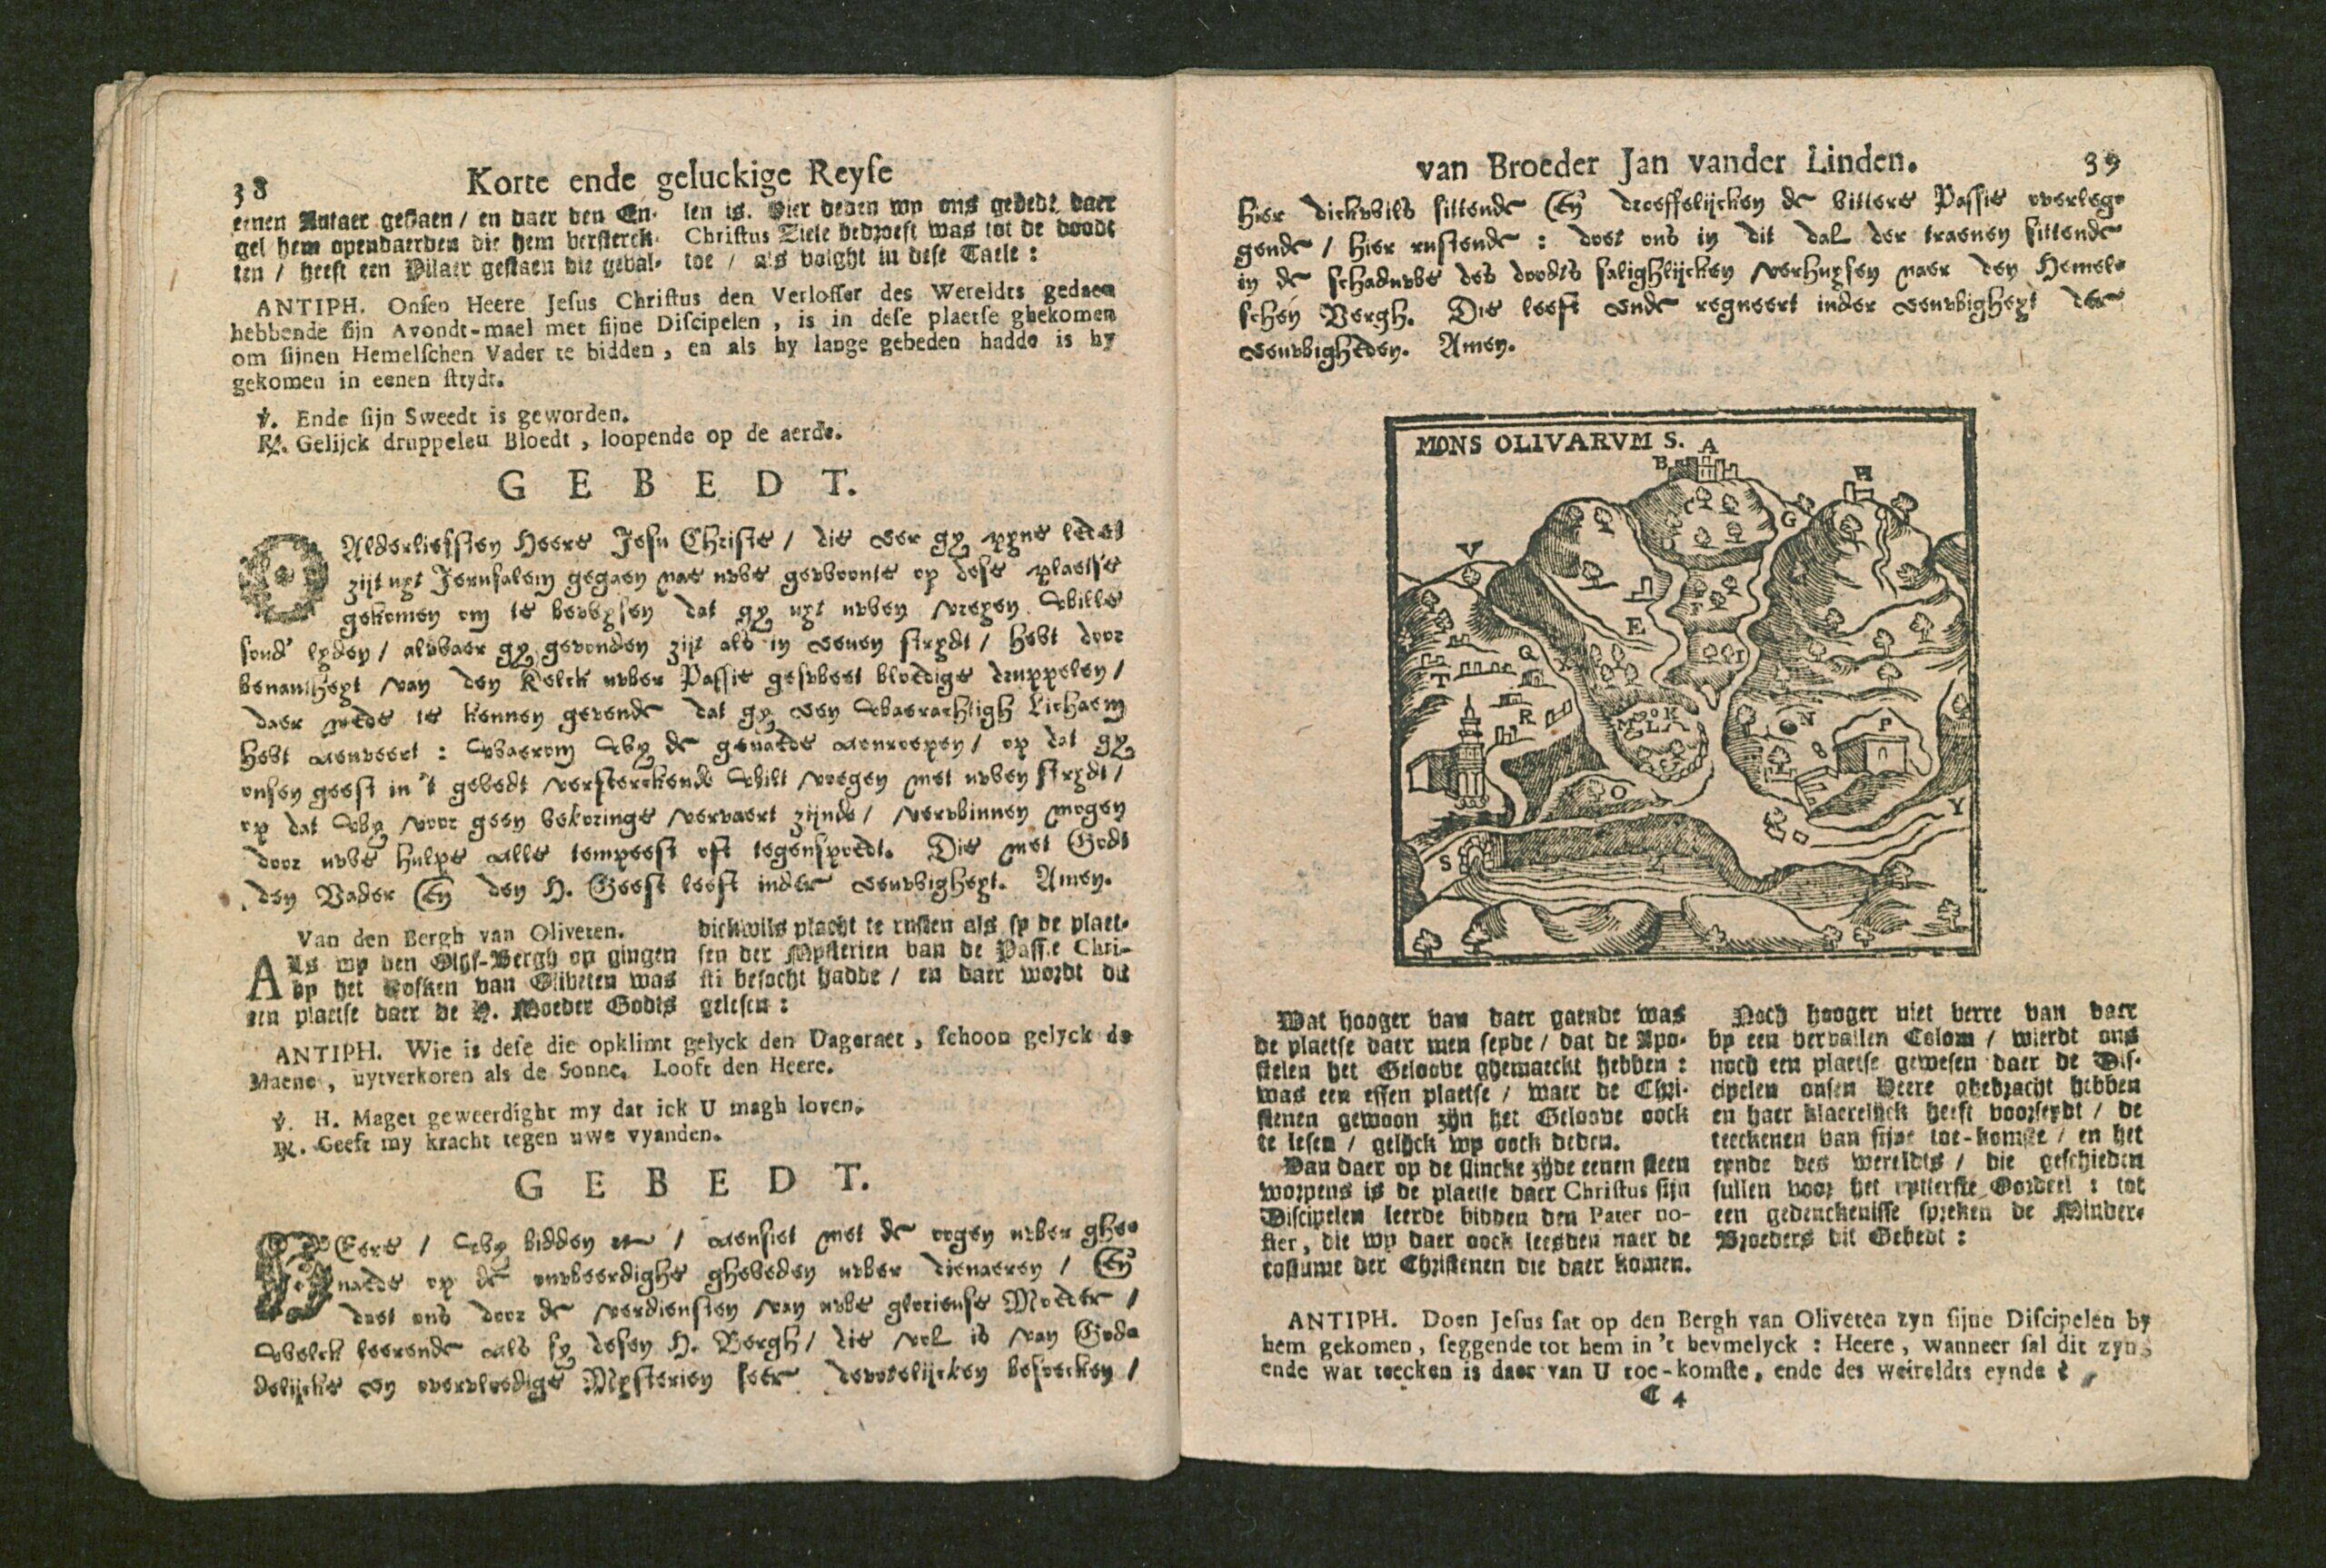 38
Korte ende geluckige Reyſe
eenen Autaer geſtaen / en daer den En-
gel hem openbaerden die hem verſterck-
ten / heeft een Pilaer geſtaen die geval-
len is. Hier deden wy ons gebedt daer
Chriſtus Ziele bedroeft was tot de doodt
toe / als volght in deſe Taele :
ANTIPH. Onſen Heere Jeſus Chriſtus den Verloſſer des Wereldts gedaen
hebbende ſijn Avondt-mael met ſijne Diſcipelen , is in deſe plaetſe ghekomen
om ſijnen Hemelſchen Vader te bidden , en als hy lange gebeden hadde is hy
gekomen in eenen ſtrydt.
℣. Ende ſijn Sweedt is geworden.
℟. Gelijck druppelen Bloedt , loopende op de aerde.
GEBEDT.
O Alderlieſſten Heere Jeſu Chriſte / die eer gy pyne leedt
zijt uyt Jeruſalem gegaen nae uwe gewoonte op deſe plaetſe
gekomen om te bewyſen dat gy uyt uwen vreyen Wille
ſoud' lyden / alwaer gy gevonden zijt als in eenen ſtrydt / hebt door
benautheyt van den Kelck uwer Paſſie geſweet bloedige druppelen /
daer mede te kennen gevende dat gy een Waerachtigh Lichaem
hebt aenveert : Waerom Wy de genaede aenroepen / op dat gy
onſen geeſt in't gebedt verſterckende Wilt voegen met uwen ſtrydt /
op dat Wy voor geen bekoringe vervaert zijnde / verwinnen mogen
door uwe hulpe alle tempeeſt oft tegenſpoedt. Die met Godt
den Vader En den H. Geeſt leeft inder eeuwigheyt. Amen.
Van den Bergh van Oliveten.
ALs wy den Olijf-Bergh op gingen
op het Voſken van Oliveten was
een plaetſe daer de H. Moeder Godts
dickwils placht te ruſten als ſy de plaet-
ſen der Myſterien van de Paſſie Chri-
ſti beſocht hadde / en daer wordt dit
geleſen :
ANTIPH. Wie is deſe die opklimt gelyck den Dageraet , ſchoon gelyck de
Maene , uytverkoren als de Sonne. Looft den Heere.
℣. H. Maget geweerdight my dat ick U magh loven.
℟. Geeft my kracht tegen uwe vyanden.
GEBEDT.
HEere / Wy bidden u / aenſiet met de oogen uwer ghe-
naede op de onweerdighe ghebeden uwer dienaeren / En
doet ons door de verdienſten van uwe glorieuſe Moeder /
Welck leerende als ſy deſen H. Bergh / die vol is van Gode-
delijcke en overvloedige Myſterien ſeer devotelijcken beſoecken /
van Broeder Jan vander Linden.
39
hier dickwils ſittende En droeffelijcken de bittere Paſſie overleg-
gende / hier ruſtende : doet ons in dit dal der traenen ſittende
in de ſchaduwe des doodts ſalighlijcken verhuyſen naer den Hemel-
ſchen Bergh. Die leeft ende regneert inder eeuwigheyt der
eeuwigheden. Amen.
MONS OLIVARVM S.
A
B
H
G
V
F
E
I
Q
T
M L K
R
N
P
O
Y
S
Wat hooger van daer gaende was
de plaetſe daer men ſeyde / dat de Apo-
ſtelen het Geloove ghemaeckt hebben :
was een effen plaetſe / waer de Chri-
ſtenen gewoon zijn het Geloove oock
te leſen / gelijck wy oock deden.
Van daer op de ſlincke zijde eenen ſteen
worpens is de plaetſe daer Chriſtus ſijn
Diſcipelen leerde bidden den Pater no-
ſter, die wy daer oock leeſden naer de
coſtume der Chriſtenen die daer komen.
Noch hooger niet verre van daer
by een vervallen Colom / wierdt ons
noch een plaetſe geweſen daer de Diſ-
cipelen onſen Heere ghebracht hebben
en haer klaerelijck heeft voorſeydt / de
teeckenen van ſijne toe-komſte / en het
eynde des wereldts / die geſchieden
ſullen voor het uytterſte Oordeel : tot
een gedenckeniſſe ſpreken de Minder-
Broeders dit Gebedt :
ANTIPH. Doen Jeſus ſat op den Bergh van Oliveten zyn ſijne Diſcipelen by
hem gekomen , ſeggende tot hem in 't heymelyck : Heere , wanneer ſal dit zyn,
ende wat teecken is daer van U toe-komſte, ende des weireldts eynde ?
C 4